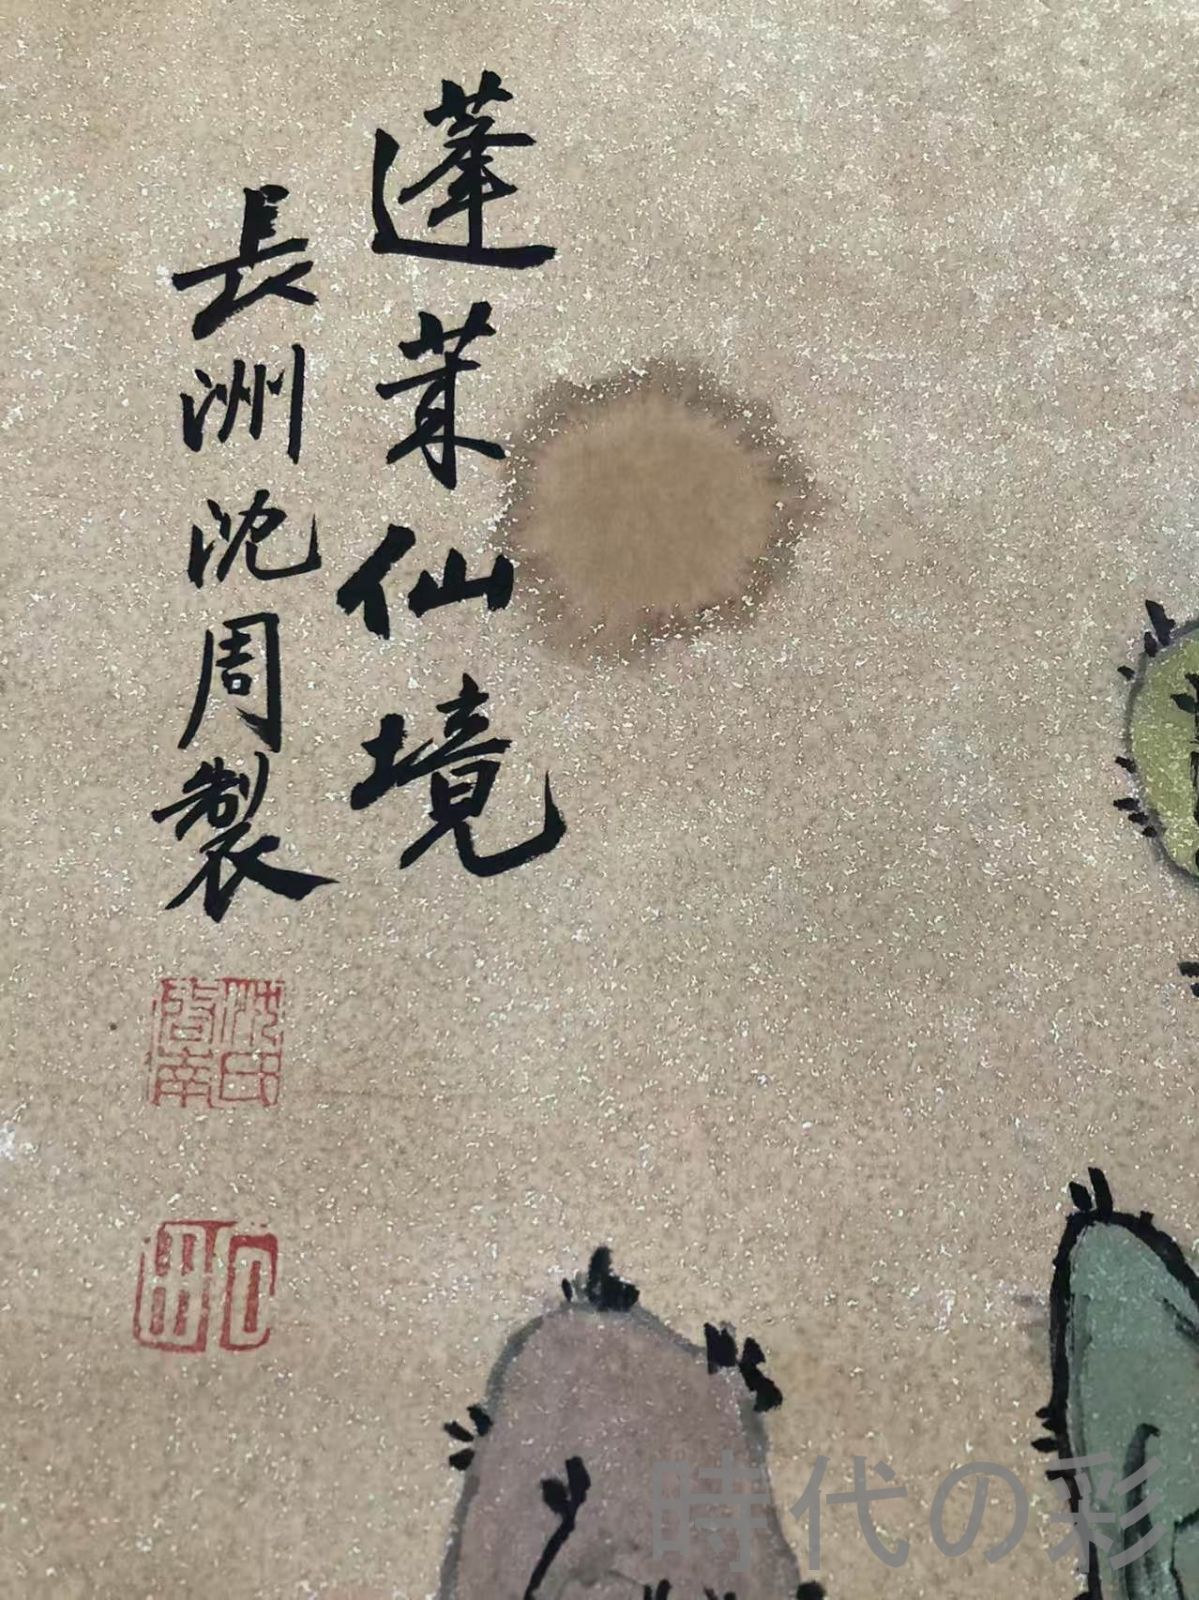 蓬萊仙境
長洲沈周製
沈印
啓南
時代の彩